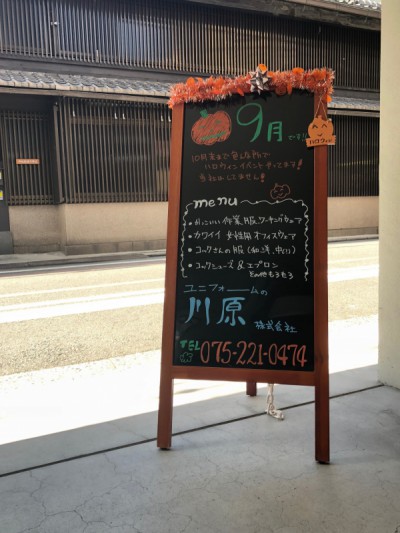 9月です!!
10月末まで色んな所で
ハロウィンイベントやってます!
ハロウィン
menu
・かっこいい作業服、ワーキングウェア
・カワイイ 女性用オフィスウェア
・コックさんの服(和、洋、中)
・コックシューズ & エプロン
その他もろもろ
ユニフォームの
川原
株式会社
TEL 075-221-0474